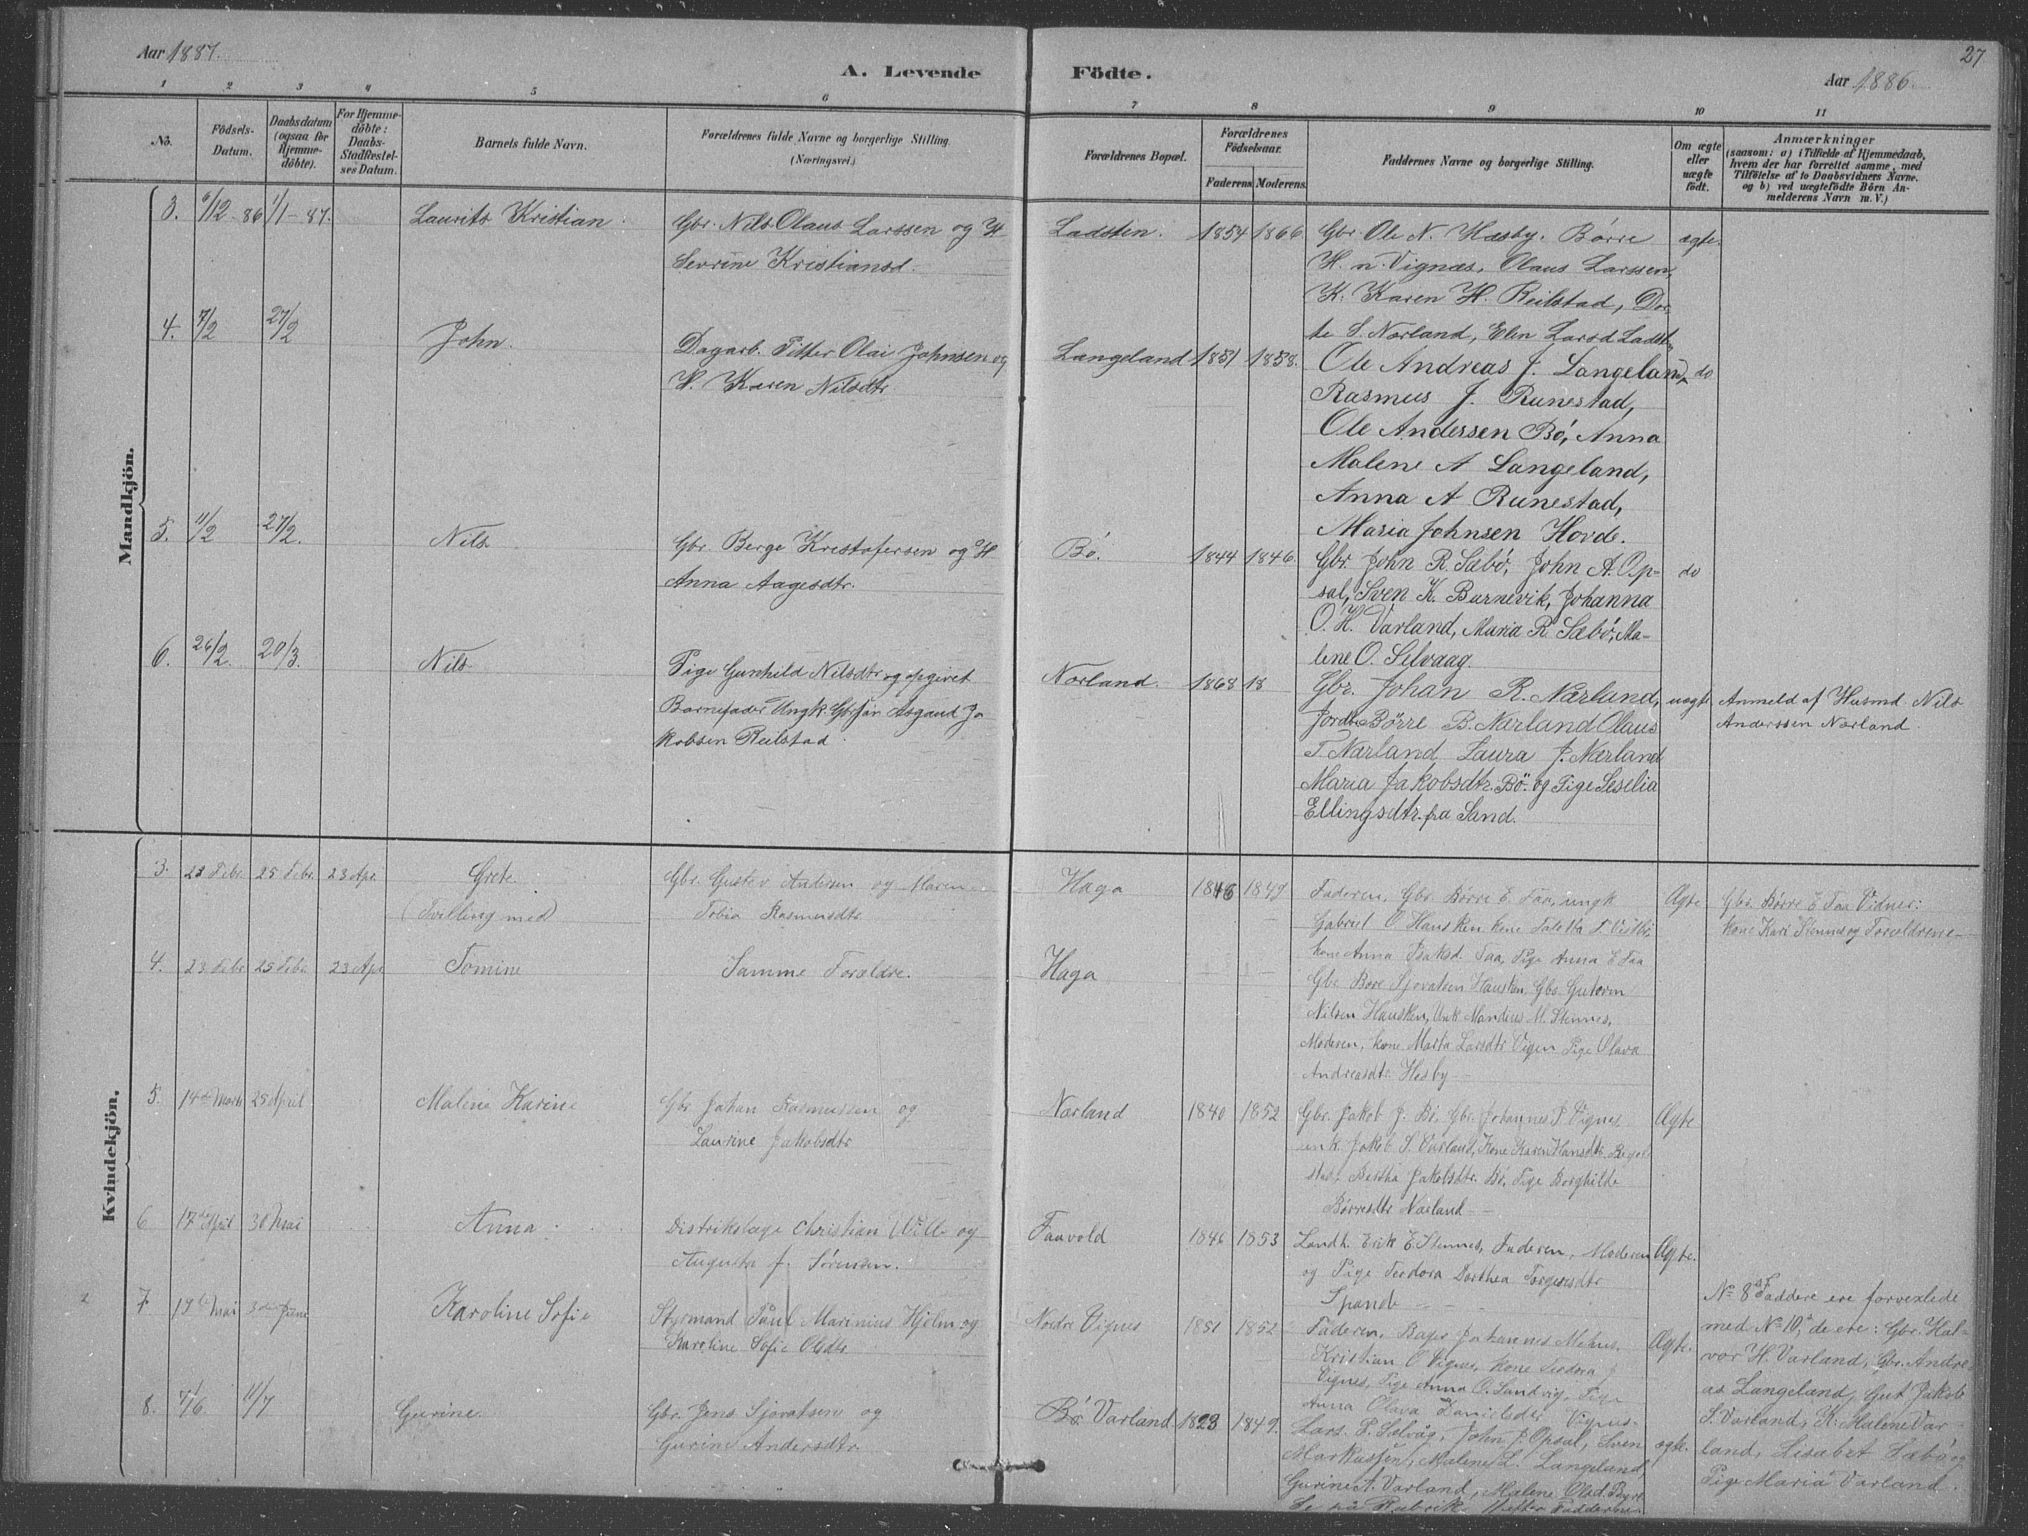 Aar 1887.
A. Levende Födte.
Aar 1886.
27
1 2 3 4 5 6 7 8 9 10 11
No.
Födsels-
Datum.
Daabsdatum
(ogsaa for
Hjemme-
döbte).
For Hjemme-
döbte:
Daabs-
Stadfæstel-
ses Datum.
Barnets fulde Navn.
Forældrenes fulde Navne og borgerlige Stilling.
(Næringsvei.)
Forældrenes Bopæl.
Forældrenes
Födselsaar.
Faderens Moderens.
Faddernes Navne og borgerlige Stilling.
Om ægte
eller
uægte
födt.
Anmærkninger
(saasom: a) i Tilfælde af Hjemmedaab,
hvem der har forrettet samme, med
Tilföielse af to Daabsvidners Navne.
og b) ved uægtefödte Börn An-
melderens Navn m. V.)
Mandkjön.
3. 6/12-86 1/1-87. Laurits Kristian.
Gbr. Nils Olaus Larssen og H
Serine Kristiansd.
Ladsten. 1854 1866
Gbr Ole N. Hæsby. Børre
H. n. Vignæs, Olaus Larssen,
K. Karen H. Reilstad, Dor-
te S. Nørland, Elen Larsd Ladst.
ægte.
4. 7/2 27/2 John.
Dagarb. Pitter Olai Johnsen og
H. Karen Nilsdtr
Langeland 1851 1858.
Ole Andreas J. Langeland,
Rasmus J. Runestad,
Ole Andersen Bø, Anna
Malene A Langeland,
Anna A Runestad,
Maria Johnsen Hovde.
do
5. 11/2 27/2. Nils
Gbr. Berge Kristofersen og H
Anna Aagesdtr.
Bø. 1844 1846.
Gbr. John R. Sæbø, John A. Op-
sal, Sven K. Barnevik, Johanna
O. H. Varland, Maria R. Sæbø, Ma-
lene O. Selvaag.
do
6. 26/2. 20/3. Nils
Pige Gunhild Nilsdtr og opgivet
Barnefader Ungk. Gbrsøn Asgaud Ja
kobsen Reilstad.
Nørland. 1868 18
Gbr. Johan R. Nærland,
Jordbr Børre B. Nærland Olaus
T. Nærland, Laura J. Nærland
Maria Jakobsdtr. Bø. og Pige Seselia
Ellingsdtr. fra Sand.
uægte
Anmeld af Husmd Nils
Anderssen Nørland.
Kvindekjön.
3. 23 Febr. 25 Febr. 23 Apr. Grete
(Tvilling med
Gbr. Gustav Andersen og Maren
Tobia Rasmusdtr.
Haga 1846 1849
Faderen, Gbr. Børre E. Faa, ungk
Gabriel O Hausken kone
kone Anna Faa, Pige Anna E Faa
Ægte
Gbr. Børre E Faa Vidner:
kone Kari Stennes og Forældrene
4. 23 Febr 25 Febr 23 Apr Tomine
Samme Forældre.
Haga
Gbr Børe Sjovatsen Hausken, Gbr. Gutorm
Nilsen Hausken, Unk Mandius M. Stennes,
Moderen, kone Marta Larsdtr Vigen Pige Olava
Andreasdtr. Hesby
5. 14de Marts 25 April Malene Karine
Gbr Johan Rasmussen og
Laurine Jakobsdtr
Nørland 1840 1852
Gbr. Jakob J. Bø, Gbr. Johannes J. Vignes,
unk. Jakob S. Varland, Kone Karen Hansdtr.
Bertha Jakobsdtr. Bø, Pige Borghilde
Børresdtr Nørland
Ægte
6 17de April 30 Mai Anna
Distrikslæge Christian Wille og
Augusta J. Sørensen.
Faavold 1846 1853
Landh. Erik E Stennes, Faderen, Moderen
og Pige Teodora Dorthea Torgersdtr
Ægte.
7 19de Mai 3die Juni Karoline Sofie
Styrmand Paul Marinius Hjelm og
Karoline Sofie Olsdtr
Nordre Vignes 1851 1852
Faderen, Bager Johannes
Kristian O Vignes, Kone Teodora J
Vignes, Pige Anna O. Sandvig, Pige
Anna Olava Danielsdtr Vignes
Ægte.
8. 7/6 11/7 Gurine.
Gbr. Jens Sjovatsen og
Gurine Andersdtr.
Bø Varland 1823 1849.
Lars P. Selvåg, John J. Opsal, Sven
Markussen, Malene L. Langeland,
Gurine A. Varland, Malene Olsd.
ægte.
No 8s Faddere ere forvexlede
med No 10, de ere: Gbr. Hal-
vor H. Varland, Gbr. Andre-
as Langeland, Gut Jakob
S. Varland, K. Malene Var-
land, Lisabet Sæbø og
Pige Maria Varland.